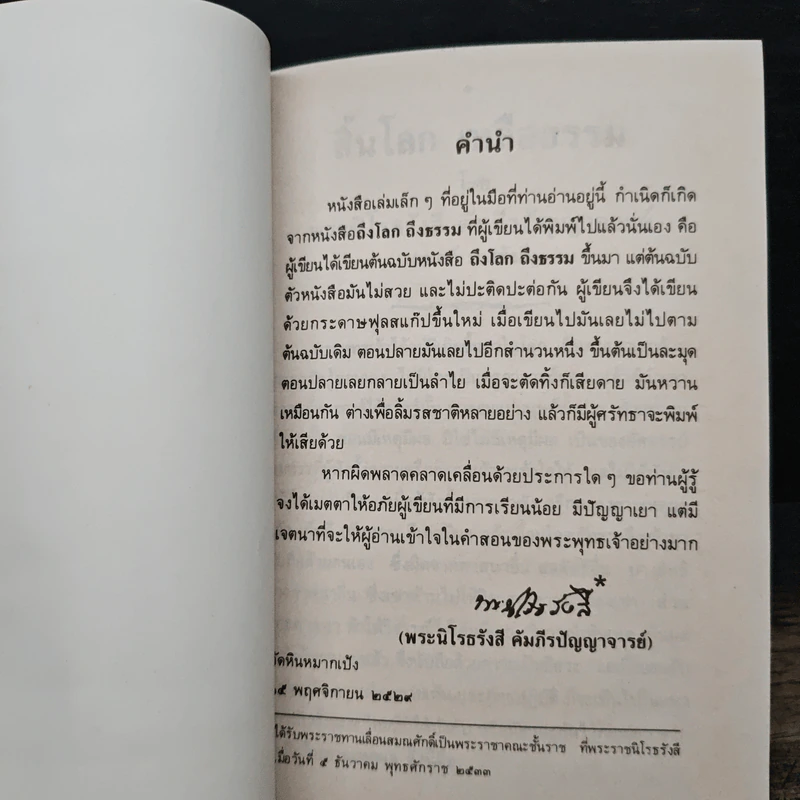 คำนำ
หนังสือเล่มเล็ก ๆ ที่อยู่ในมือที่ท่านอ่านอยู่นี้ กำเนิดก็เกิด
จากหนังสือถึงโลก ถึงธรรม ที่ผู้เขียนได้พิมพ์ไปแล้วนั่นเอง คือ
ผู้เขียนได้เขียนต้นฉบับหนังสือ ถึงโลก ถึงธรรม ขึ้นมา แต่ต้นฉบับ
ตัวหนังสือมันไม่สวย และไม่ปะติดปะต่อกัน ผู้เขียนจึงได้เขียน
ด้วยกระดาษฟุลสแก๊ปขึ้นใหม่ เมื่อเขียนไปมันเลยไม่ไปตาม
ต้นฉบับเดิม ตอนปลายมันเลยไปอีกสำนวนหนึ่ง ขึ้นต้นเป็นละมุด
ตอนปลายเลยกลายเป็นลำไย เมื่อจะตัดทิ้งก็เสียดาย มันหวาน
เหมือนกัน ต่างเพื่อลิ้มรสชาติหลายอย่าง แล้วก็มีผู้ศรัทธาจะพิมพ์
ให้เสียด้วย
หากผิดพลาดคลาดเคลื่อนด้วยประการใด ๆ ขอท่านผู้รู้
จงได้เมตตาให้อภัยผู้เขียนที่มีการเรียนน้อย มีปัญญาเยา แต่มี
เจตนาที่จะให้ผู้อ่านเข้าใจในคำสอนของพระพุทธเจ้าอย่างมาก
พระนิโรธรังสี*
(พระนิโรธรังสี คัมภีรปัญญาจารย์)
วัดหินหมากเป้ง
๑๕ พฤศจิกายน ๒๕๒๙
ได้รับพระราชทานเลื่อนสมณศักดิ์เป็นพระราชาคณะชั้นราช ที่พระราชนิโรธรังสี
เมื่อวันที่ ๕ ธันวาคม พุทธศักราช ๒๕๓๓